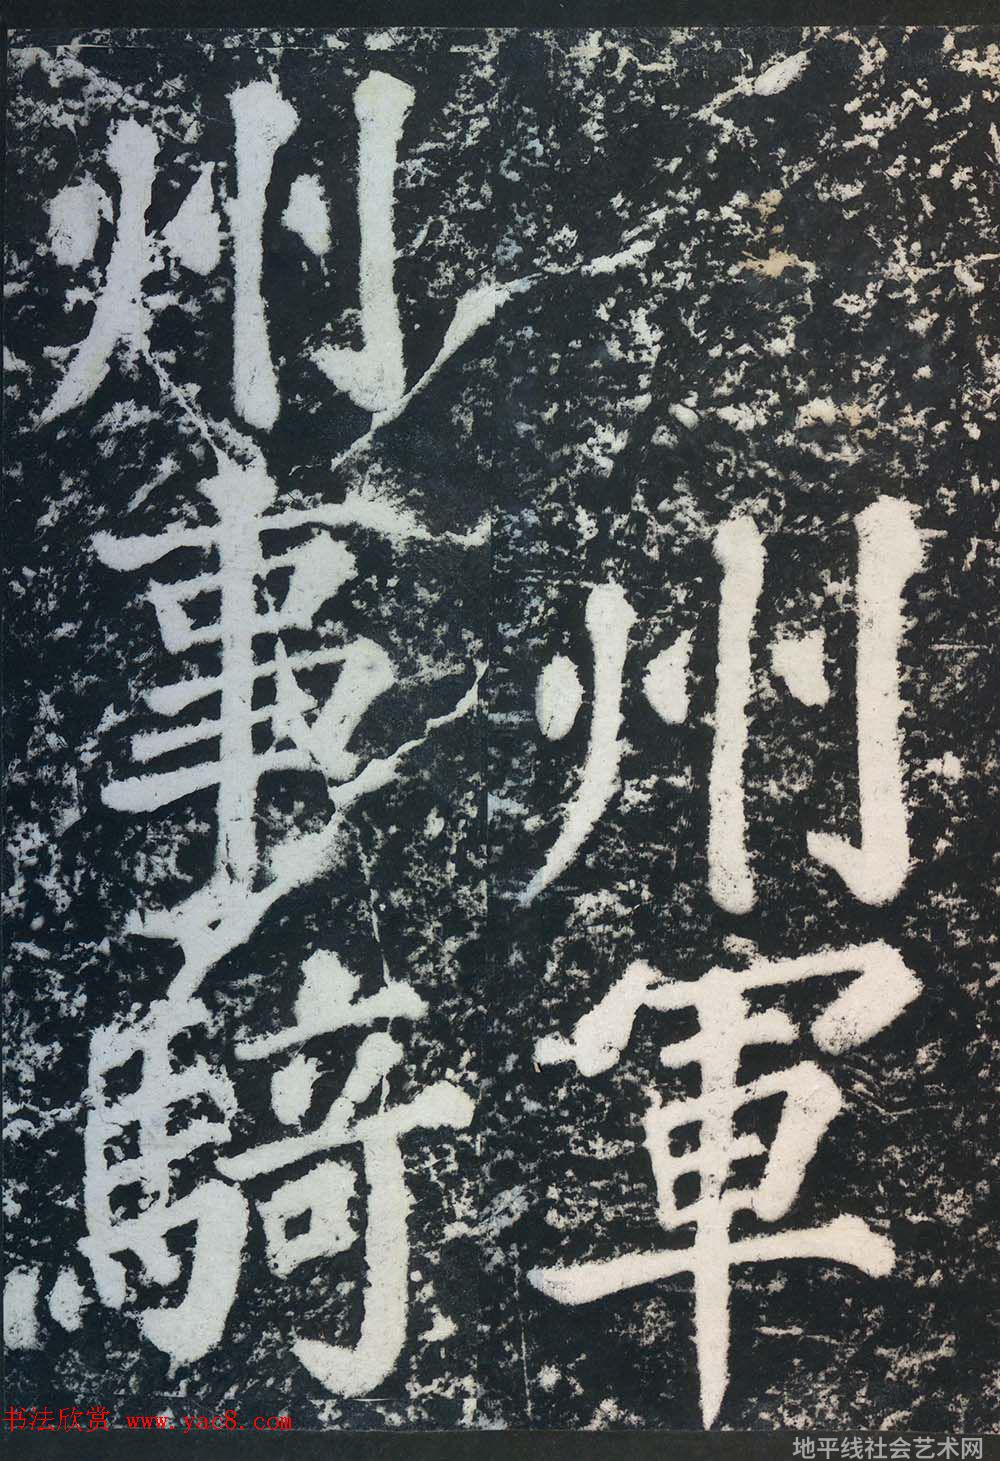 州軍
州事騎
书法欣赏 www.yac8.com
地平线社会艺术网